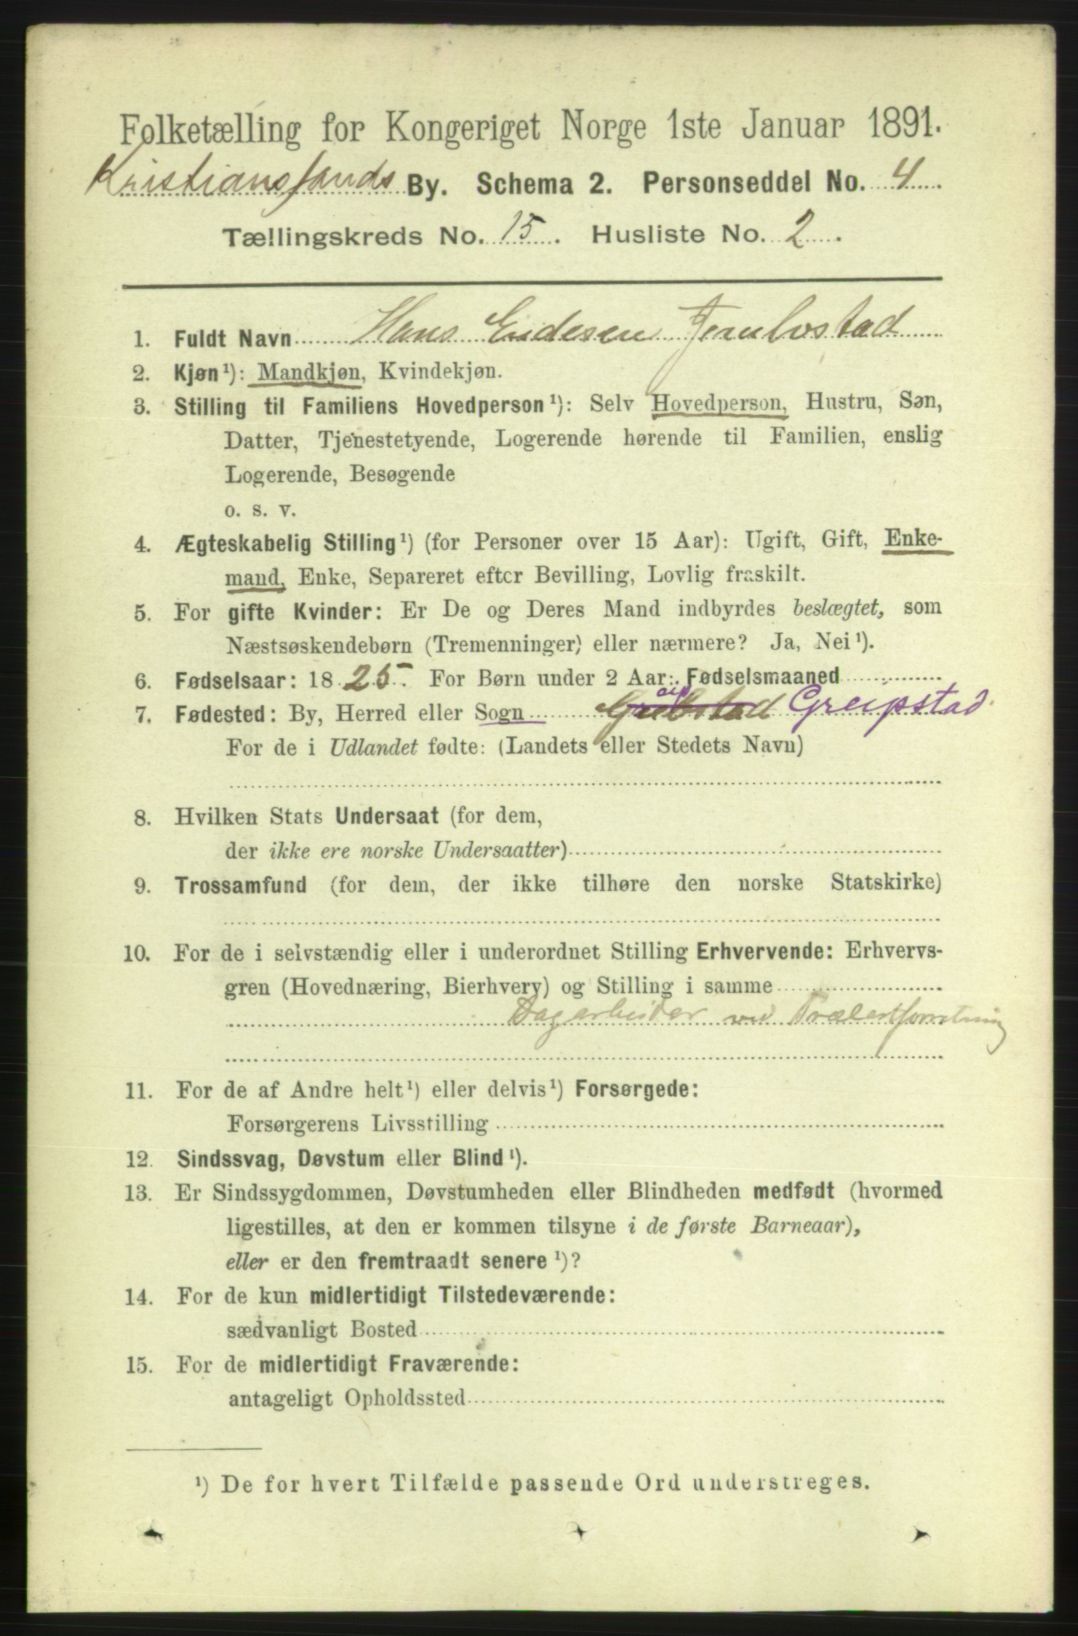 Folketælling for Kongeriget Norge 1ste Januar 1891.
Kristianssands By. Schema 2. Personseddel No. 4
Tællingskreds No. 15. Husliste No. 2.
1. Fuldt Navn Hans Endesen
2. Kjøn¹): Mandkjøn, Kvindekjøn.
3. Stilling til Familiens Hovedperson¹): Selv Hovedperson, Hustru, Søn,
Datter, Tjenestetyende, Logerende hørende til Familien, enslig
Logerende, Besøgende
o. s. v.
4. Ægteskabelig Stilling¹) (for Personer over 15 Aar): Ugift, Gift, Enke-
mand, Enke, Separeret efter Bevilling, Lovlig fraskilt.
5. For gifte Kvinder: Er De og Deres Mand indbyrdes beslægtet, som
Næstsøskendebørn (Tremenninger) eller nærmere? Ja, Nei¹).
6. Fødselsaar: 1825. For Børn under 2 Aar: Fødselsmaaned
7. Fødested: By, Herred eller Sogn Greipstad.
For de i Udlandet fødte: (Landets eller Stedets Navn)
8. Hvilken Stats Undersaat (for dem,
der ikke ere norske Undersaatter)
9. Trossamfund (for dem, der ikke tilhøre den norske Statskirke)
10. For de i selvstændig eller i underordnet Stilling Erhvervende: Erhvervs-
gren (Hovednæring, Bierhverv) og Stilling i samme
Dagarbeider ved Trælastforretning
11. For de af Andre helt¹) eller delvis¹) Forsørgede:
Forsørgerens Livsstilling
12. Sindssvag, Døvstum eller Blind¹).
13. Er Sindssygdommen, Døvstumheden eller Blindheden medfødt (hvormed
ligestilles, at den er kommen tilsyne i de første Barneaar),
eller er den fremtraadt senere¹)?
14. For de kun midlertidigt Tilstedeværende:
sædvanligt Bosted
15. For de midlertidigt Fraværende:
antageligt Opholdssted
¹) De for hvert Tilfælde passende Ord understreges.